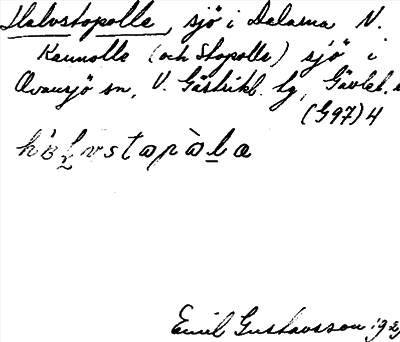 Halvstopolle, sjö i Dalarna N.
Kannolle (och Stopolle) sjö i
Ovansjö sn, V. Gästrikl. hg, Gävleb.
(G97) 4
Emil Gustavsson